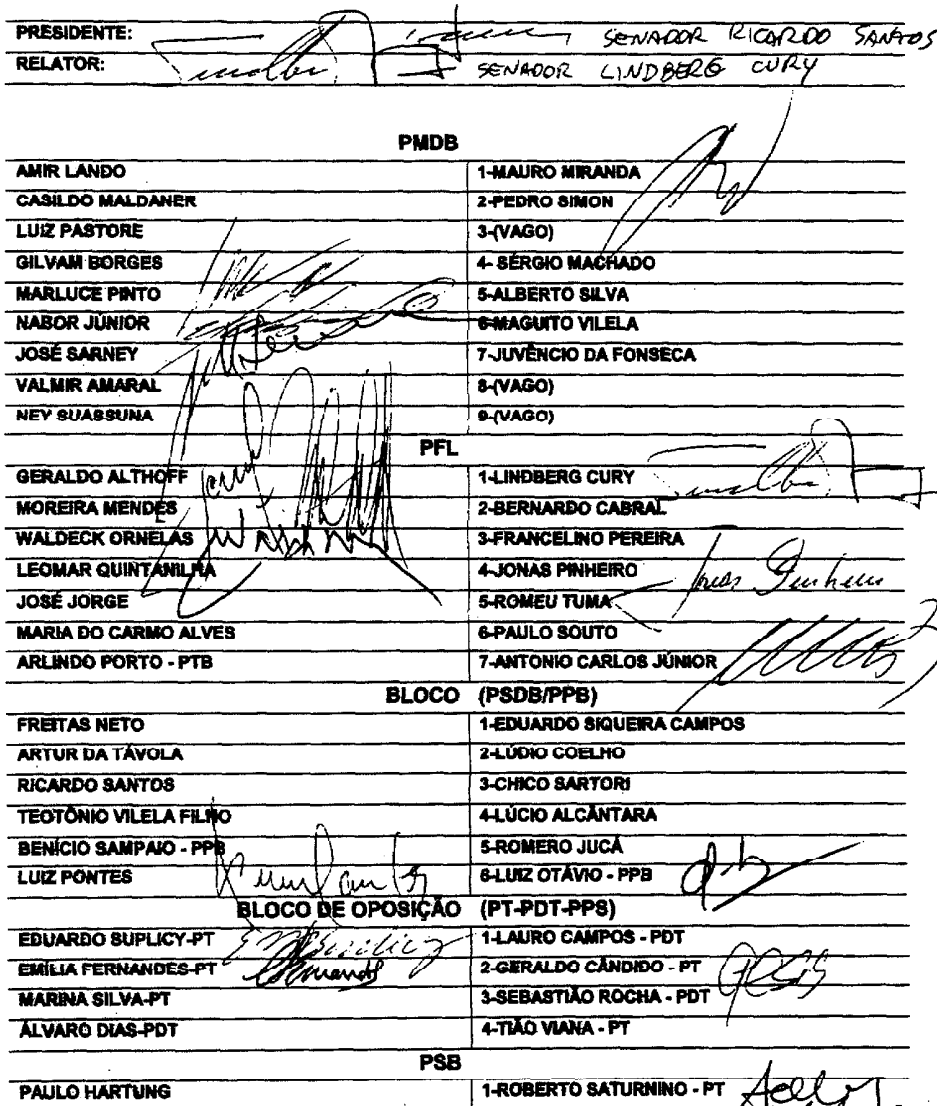 PRESIDENTE: SENADOR RICARDO SANTOS
RELATOR: SENADOR LINDBERG CURY
PMDB
AMIR LANDO 1-MAURO MIRANDA
CASILDO MALDANER 2-PEDRO SIMON
LUIZ PASTORE 3-(VAGO)
GILVAM BORGES 4- SÉRGIO MACHADO
MARLUCE PINTO 5-ALBERTO SILVA
NABOR JÚNIOR 6-MAGUITO VILELA
JOSÉ SARNEY 7-JUVÊNCIO DA FONSECA
VALMIR AMARAL 8-(VAGO)
NEY SUASSUNA 9-(VAGO)
PFL
GERALDO ALTHOFF 1-LINDBERG CURY
MOREIRA MENDES 2-BERNARDO CABRAL
WALDECK ORNELAS 3-FRANCELINO PEREIRA
LEOMAR QUINTANILHA 4-JONAS PINHEIRO Jonas Pinheiro
JOSÉ JORGE 5-ROMEU TUMA
MARIA DO CARMO ALVES 6-PAULO SOUTO
ARLINDO PORTO - PTB 7-ANTONIO CARLOS JÚNIOR
BLOCO (PSDB/PPB)
FREITAS NETO 1-EDUARDO SIQUEIRA CAMPOS
ARTUR DA TÁVOLA 2-LÚDIO COELHO
RICARDO SANTOS 3-CHICO SARTORI
TEOTÔNIO VILELA FILHO 4-LÚCIO ALCÂNTARA
BENÍCIO SAMPAIO - PPB 5-ROMERO JUCÁ
LUIZ PONTES 6-LUIZ OTÁVIO - PPB
BLOCO DE OPOSIÇÃO (PT-PDT-PPS)
EDUARDO SUPLICY-PT 1-LAURO CAMPOS - PDT
EMÍLIA FERNANDES-PT 2-GERALDO CÂNDIDO - PT
MARINA SILVA-PT 3-SEBASTIÃO ROCHA - PDT
ÁLVARO DIAS-PDT 4-TIÃO VIANA - PT
PSB
PAULO HARTUNG 1-ROBERTO SATURNINO - PT